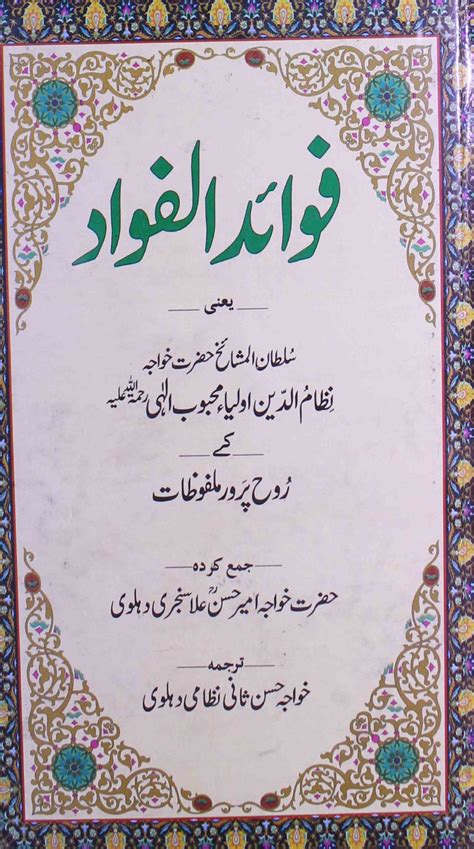 فوائد الفواد
یعنی
سُلطان المشائخ حضرت خواجہ
نظامُ الدّین اولیاء محبوب الٰہی رحمۃ اللہ علیہ
کے
رُوح پرور ملفوظات
جمع کردہ
حضرت خواجہ امیر حسن علا سنجری دہلوی
ترجمہ
خواجہ حسن ثانی نظامی دہلوی